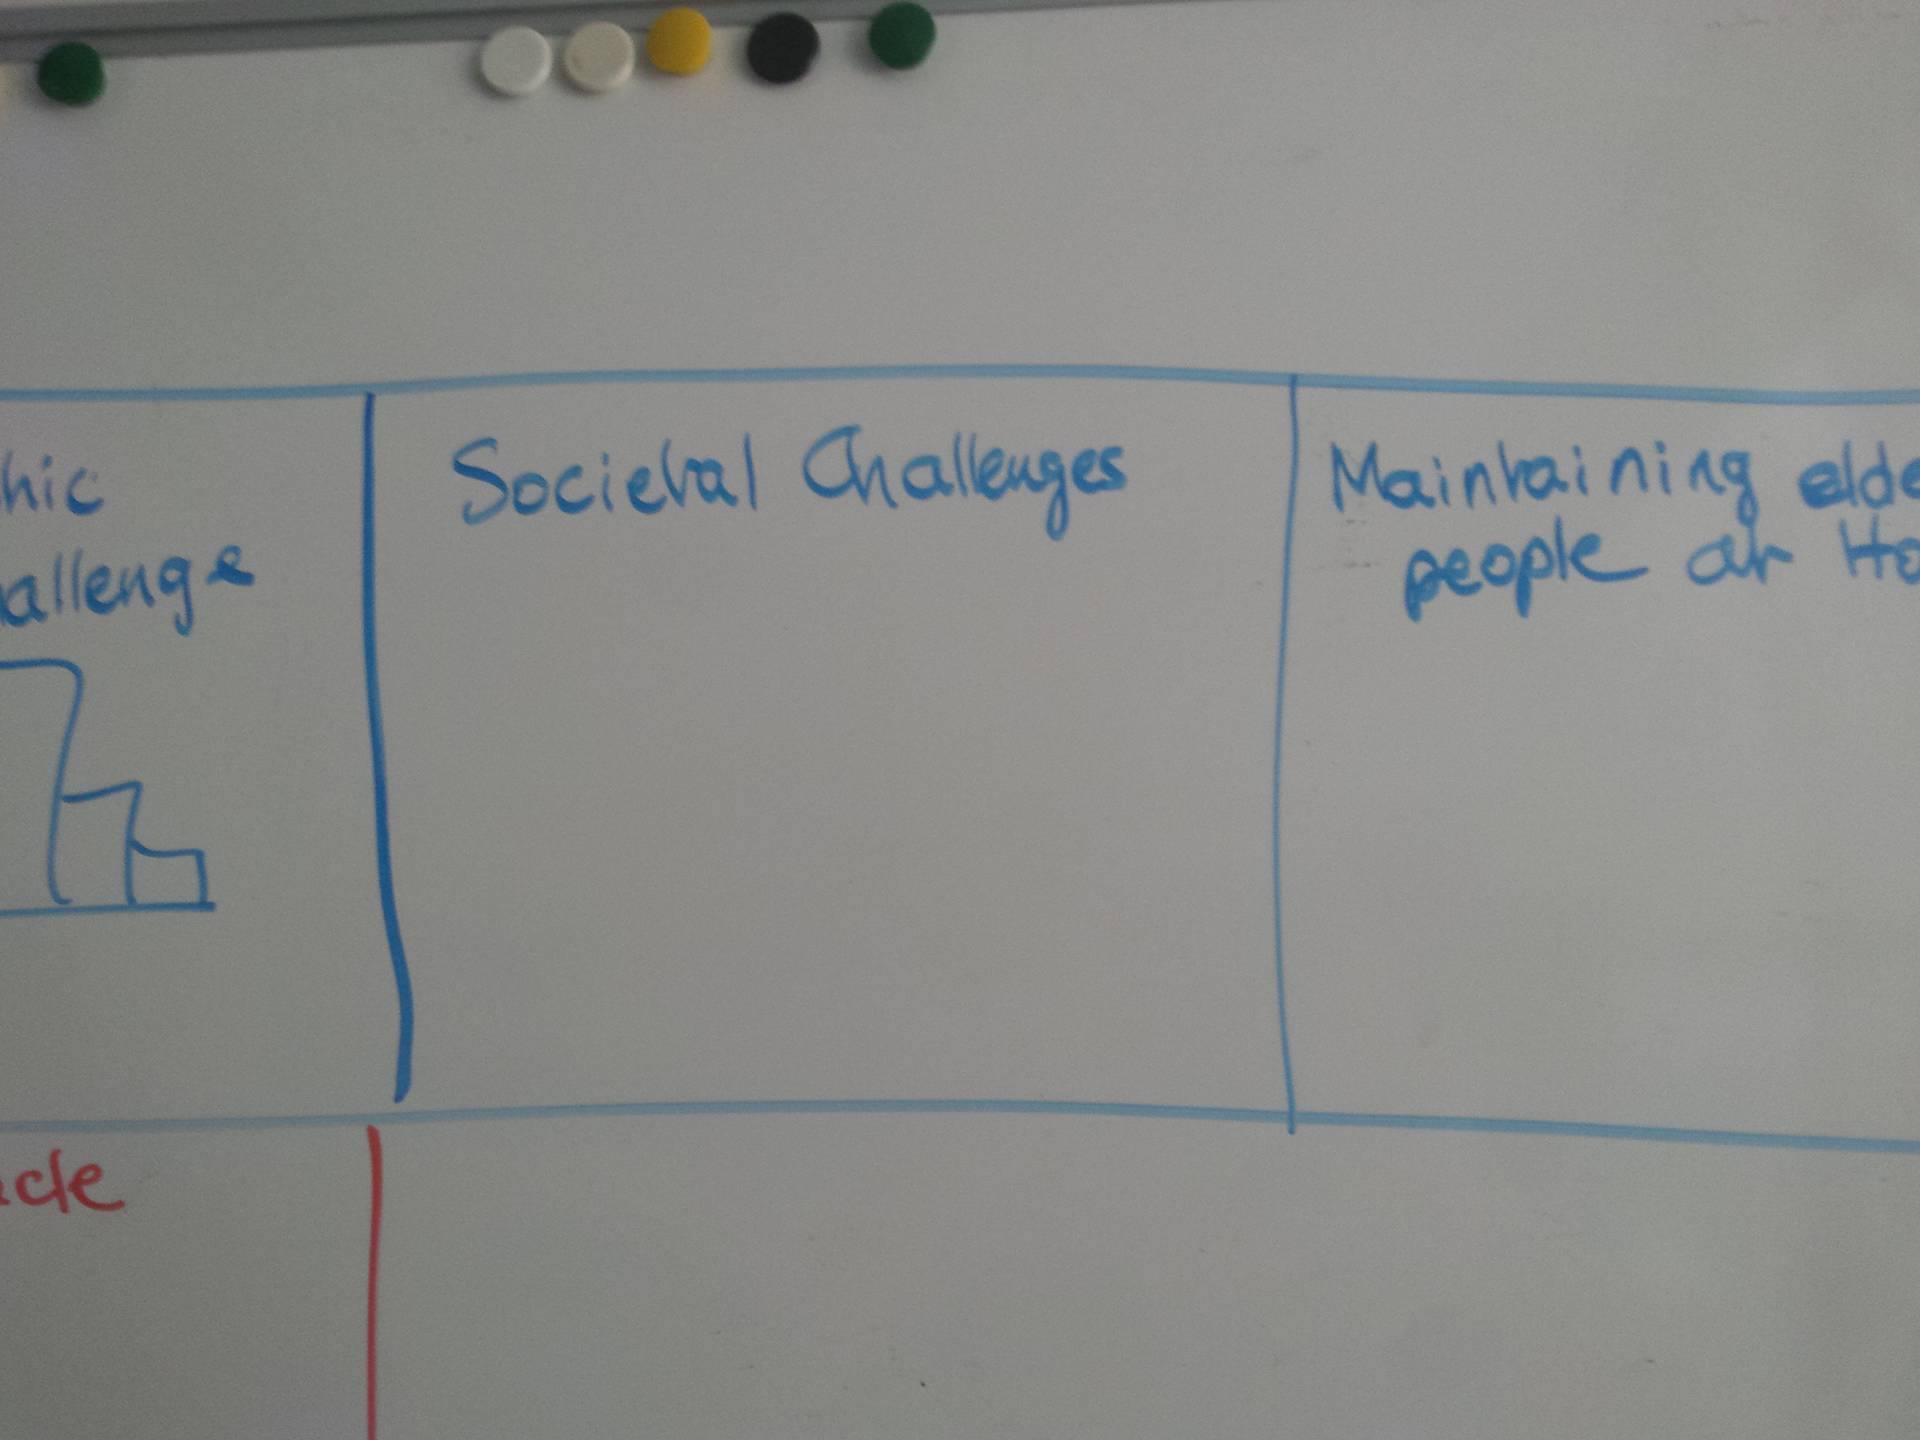 hic
allenge
Societal Challenges
Maintaining elde
people at Ho
cle